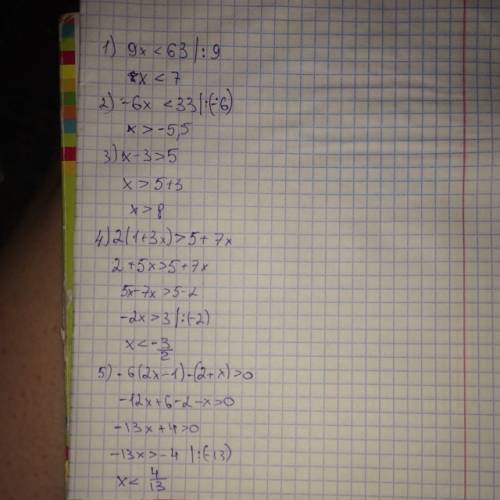 1) 9x < 63 |: 9
x < 7
2) -6x < 33 |:(-6)
x > -5,5
3) x - 3 > 5
x > 5+3
x > 8
4) 2(1+3x) > 5+7x
2+5x > 5+7x
5x-7x > 5-2
-2x > 3 |:(-2)
x < -3/2
5) -6(2x-1)-(2+x) > 0
-12x+6-2-x > 0
-13x+4 > 0
-13x > -4 |:(-13)
x < 4/13